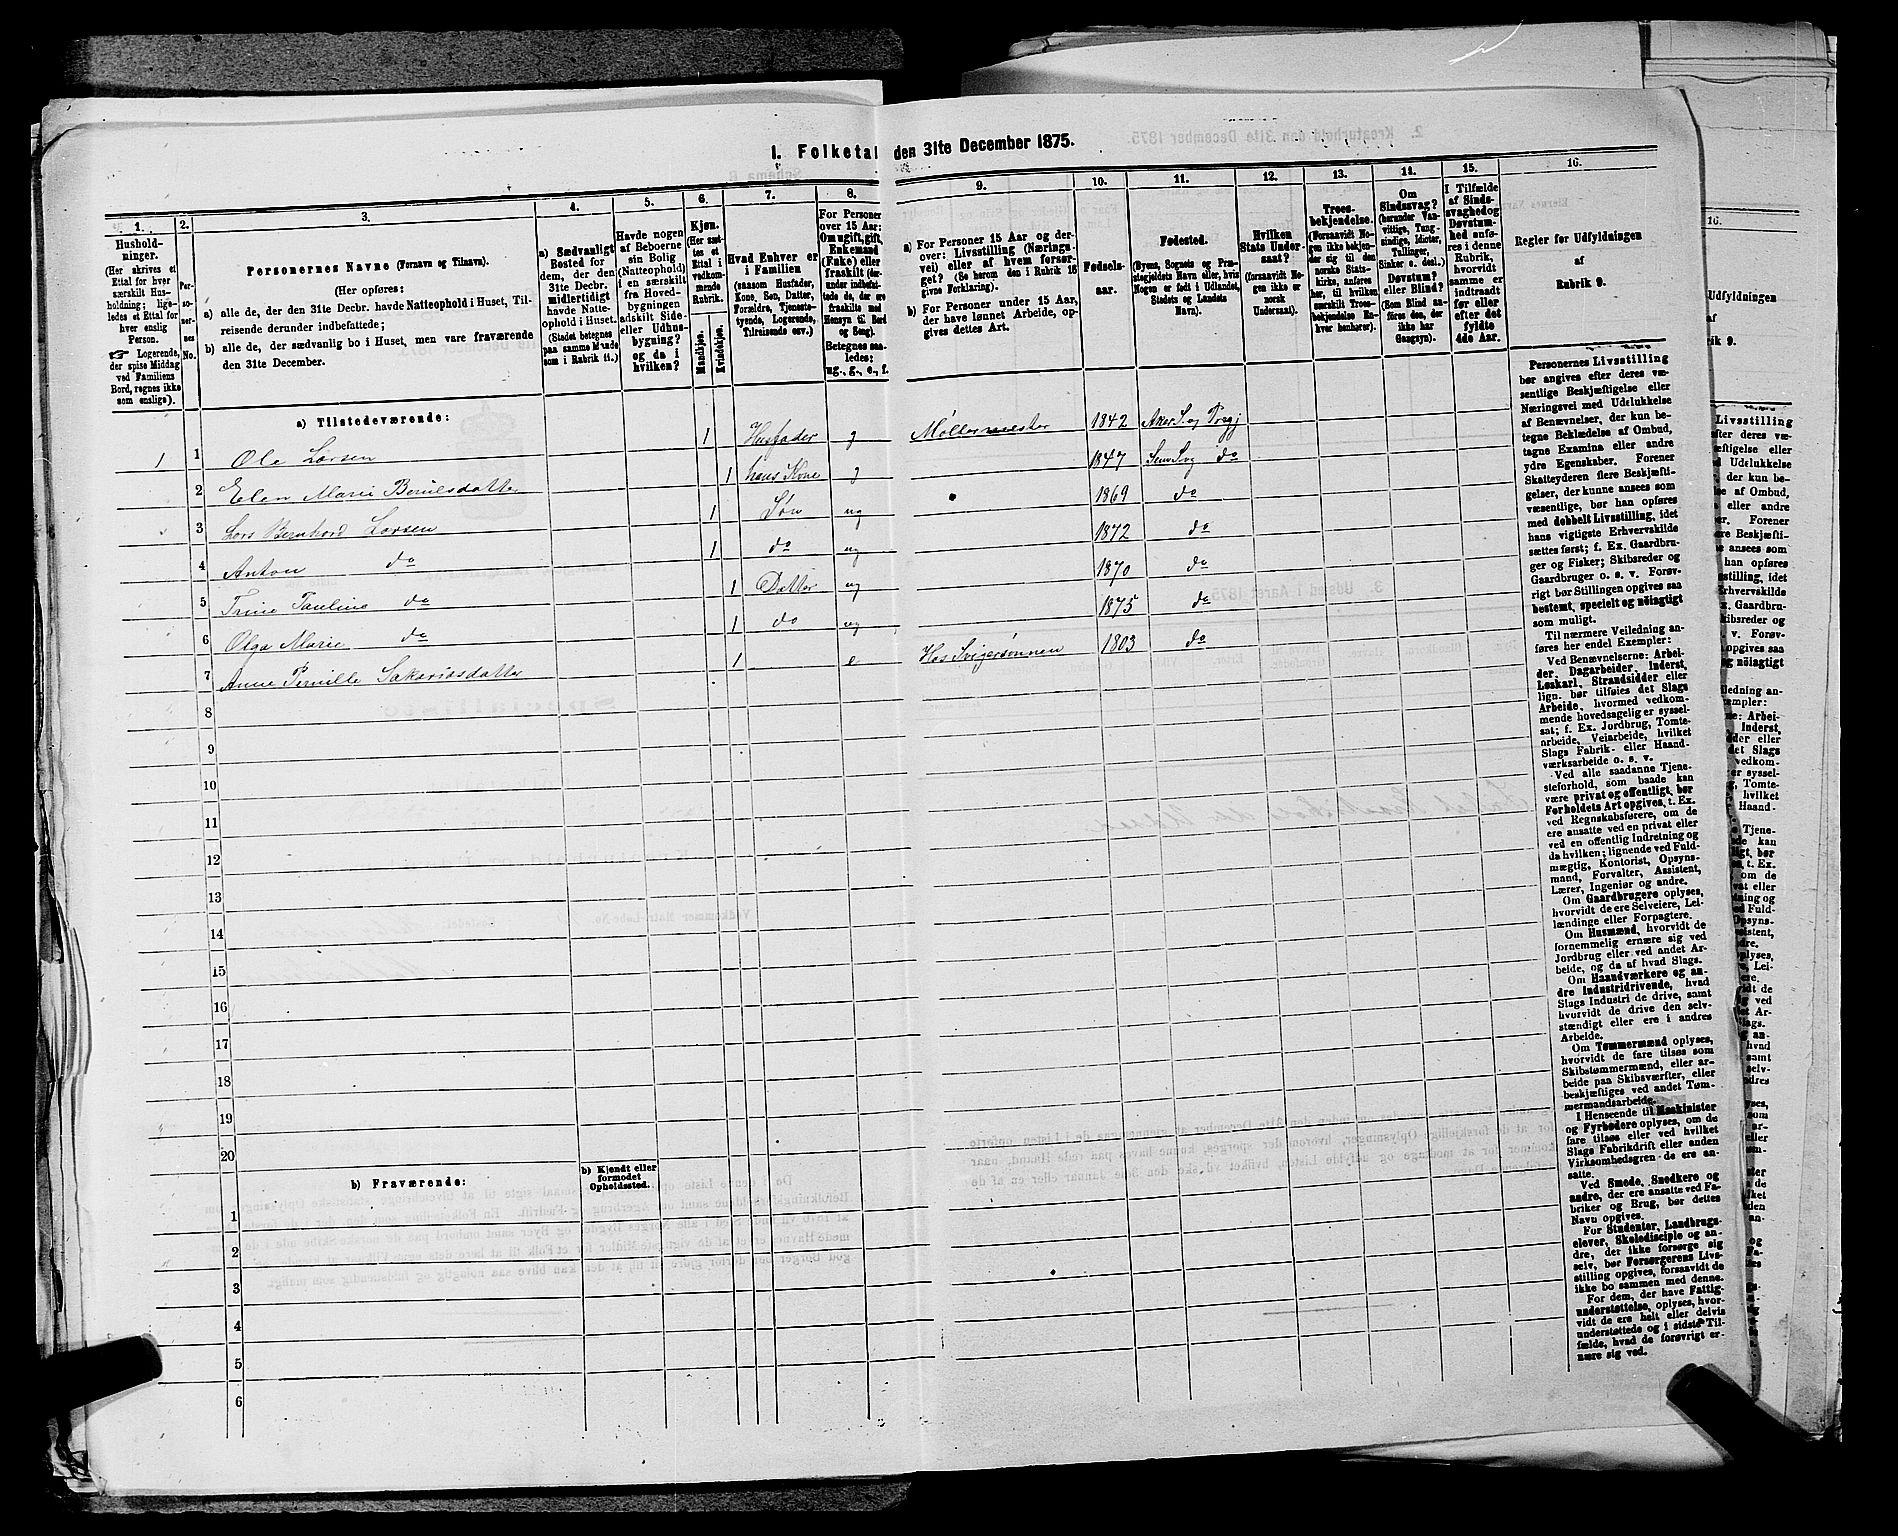 1. Folketal den 31te December 1875.
1.
Hushold-
ninger.
(Her skrives et
Ettal for hver
særskilt Hus-
holdning; lige-
ledes et Ettal for
hver enslig
Person.
☞ Logerende,
der spise Middag
ved Familiens
Bord, regnes ikke
som enslige).
2.
Per-
so-
ner-
nes
No.
3.
Personernes Navne (Fornavn og Tilnavn).
(Her opføres:
a) alle de, der den 31te Decbr. havde Natteophold i Huset, Til-
reisende derunder indbefattede;
b) alle de, der sædvanlig bo i Huset, men vare fraværende
den 31te December.
4.
a) Sædvanligt
Bosted for
dem, der den
31te Decbr.
midlertidigt
havde Natte-
ophold i Huset.
(Stedet betegnes
paa samme Maade
som i Rubrik 11.)
5.
Havde nogen
af Beboerne
sin Bolig
(Natteophold)
i en særskilt
fra Hoved-
bygningen
adskilt Side-
eller Udhus-
bygning?
og da i
hvilken?
6.
Kjøn.
(Her sæt-
tes et
Ettal i
vedkom-
mende
Rubrik.
Mandkjøn.
Kvindekjøn.
7.
Hvad Enhver er
i Familien
(saasom Husfader,
Kone, Søn, Datter,
Forældre, Tjeneste-
tyende, Logerende,
Tilreisende osv.)
8.
For Personer
over 15 Aar:
Om ugift, gift,
Enkemand
(Enke) eller
fraskilt (der-
under indbefat-
tede de, der ere
fraskilte med
Hensyn til Bord
og Seng).
Betegnes saa-
ledes:
ug., g., e., f.
9.
a) For Personer 15 Aar og der-
over: Livsstilling (Nærings-
vei) eller af hvem forsør-
get? (Se herom den i Rubrik 16
givne Forklaring).
b) For Personer under 15 Aar,
der have lønnet Arbeide, op-
gives dettes Art.
10.
Fødsels-
aar.
11.
Fødested.
(Byens, Sognets og Præ-
stegjeldets Navn eller, hvis
Nogen er født i Udlandet,
Stedets og Landets
Navn).
12.
Hvilken
Stats Under-
saat?
(forsaavidt No-
gen ikke er
norsk
Undersaat).
13.
Troes-
bekjendelse.
(Forsaavidt No-
gen ikke bekjen-
der sig til den
norske Stats-
kirke, anføres
her, til hvilken
særskilt Troes-
bekjendelse En-
hver henhører).
14.
Om
Sindssvag?
(herunder Van-
vittige, Tung-
sindige, Idioter,
Tullinger,
Sinker o. desl.)
Døvstum?
eller Blind?
(Som Blind an-
føres den, der
ikke har
Gangsyn).
15.
I Tilfælde
af Sinds-
svaghed og
Døvstum-
hed anfø-
res i denne
Rubrik,
hvorvidt
samme er
indtraadt
før eller
efter det
fyldte
4de Aar.
16.
Regler for Udfyldningen
af
Rubrik 9.
a) Tilstedeværende:
1 1 Ole Larsen 1 Husfader g Møllermester 1842 Aker S. og Prægj
2 Elen Marie Berulsdatter 1 hans Kone g 1847 Sem Svg do
3 Lars Bernhard Larsen 1 Søn ug 1869 do
4 Anton do 1 do ug 1872 do
5 Trine Pauline do 1 Datter ug 1870 do
6 Olga Marie do 1 do ug 1875 do
7 Anne Pernille Sakariasdatter 1 e Hos Svigersønnen 1803 do
8
9
10
11
12
13
14
15
16
17
18
19
20
b) Fraværende:
b) Kjendt eller
formodet
Opholdssted.
1
2
3
4
5
6
Personernes Livsstilling
bør angives efter deres væ-
sentlige Beskjæftigelse eller
Næringsvei med Udelukkelse
af Benævnelser, der kun be-
tegne Beklædelse af Ombud,
tagne Examina eller andre
ydre Egenskaber. Forener
Skatteyderen flere Beskjæfti-
gelser, der kunne ansees som
væsentlige, bør han opføres
med dobbelt Livsstilling, idet
hans vigtigste Erhvervskilde
sættes først; f. Ex. Gaardbru-
ger og Fisker; Skibsreder og
Gaardbruger o. s. v. Forøv-
rigt bør Stillingen opgives saa
bestemt, specielt og nöiagtigt
som muligt.
Til nærmere Veiledning an-
føres her endel Exempler:
Ved Benævnelserne: Arbei-
der, Dagarbeider, Inderst,
Løskarl, Strandsidder eller
lign. bør tilføies det Slags
Arbeide, hvormed vedkom-
mende hovedsagelig er syssel-
sat; f. Ex. Jordbrug, Tomte-
arbeide, Veiarbeide, hvilket
Slags Fabrik- eller Haand-
værksarbeide o. s. v.
Ved alle saadanne Tjene-
steforhold, som baade kan
være privat og offentligt, bør
Forholdets Art opgives, t. Ex.
ved Regnskabsførere, om de
ere ansatte ved en privat eller
ved en offentlig Indretning og
da hvilken; lignende ved Fuld-
mægtig, Kontorist, Opsyns-
mand, Forvalter, Assistent,
Lærer, Ingeniør og andre.
Om Gaardbrugere oplyses,
hvorvidt de ere Selveiere, Lei-
lændinge eller Forpagtere.
Om Husmænd, hvorvidt de
fornemmelig ernære sig ved
Jordbrug eller ved andet Ar-
beide, og da af hvad Slags.
Om Haandværkere og an-
dre Industridrivende, hvad
Slags Industri de drive, samt
hvorvidt de drive den selv-
stændigt eller ere i andres
Arbeide.
Om Tømmermænd oplyses,
hvorvidt de fare tilsøs som
Skibstømmermænd, eller ar-
beide paa Skibsværfter, eller
beskjæftiges ved andet Tøm-
mermandsarbeide.
I Henseende til Maskinister
og Fyrbødere oplyses, om de
fare tilsøs eller ved hvilket
Slags Fabrikdrift eller anden
Virksomhedsgren de ere an-
satte.
Ved Smede, Snedkere og
andre, der ere ansatte ved Fa-
briker og Brug, bør dettes
Navn opgives.
For Studenter, Landbrugs-
elever, Skoledisciple og an-
dre, der ikke forsørge sig
selv, bør Forsørgerens Livs-
stilling opgives, forsaavidt de
ikke bo sammen med denne.
For dem, der have Fattig-
understøttelse, oplyses, hvor-
vidt de ere helt eller delvis
understøttede og i sidste Til-
fælde, hvad de forøvrigt er-
nære sig ved.